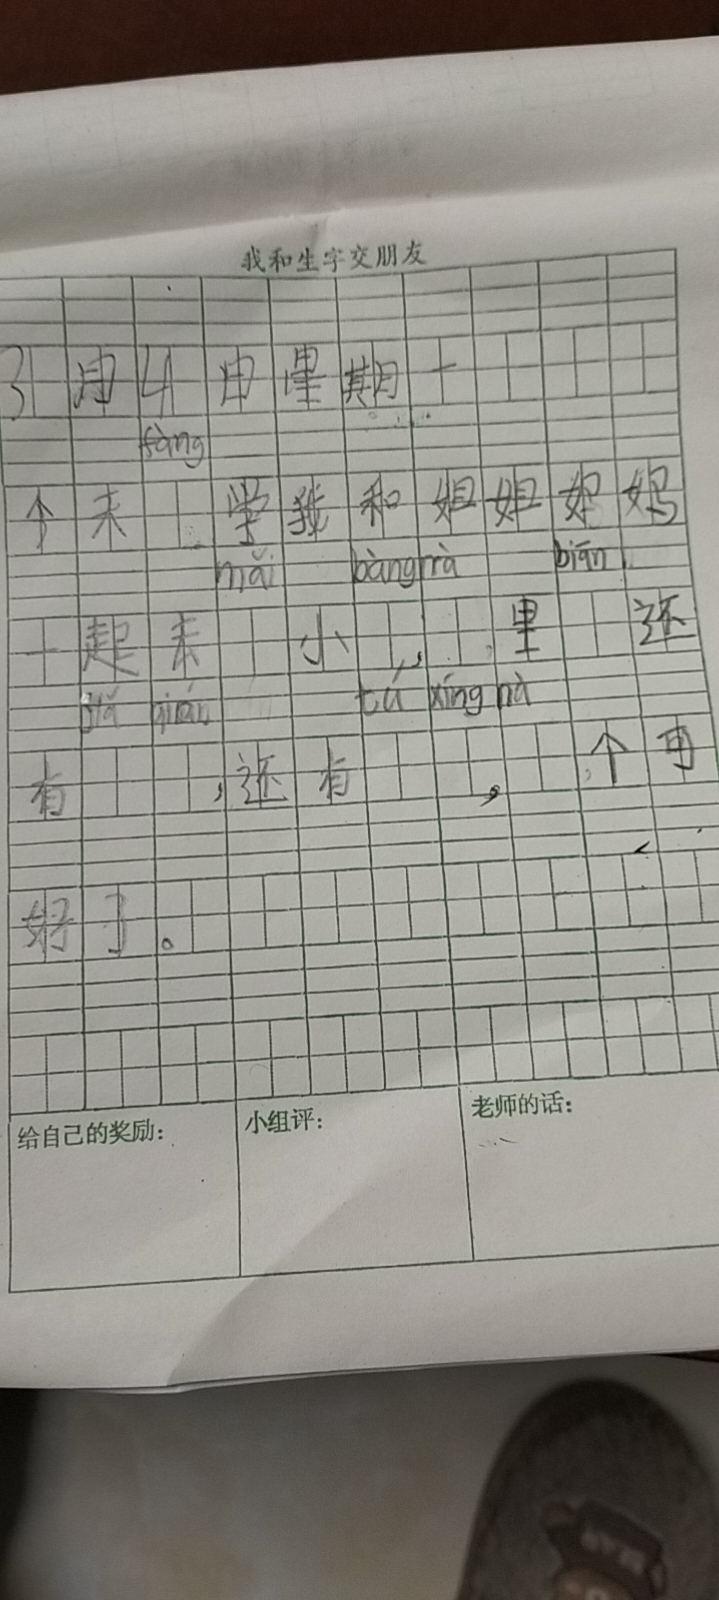 我和生字交朋友
3月4日星期一
fàng
个未 学我和姐姐妈妈
mǎi bàng nà biān
一起未 小 , 里 还
qián tú xíng nà
有 , 还有 , 个可
好了。
给自己的奖励:
小组评:
老师的话: